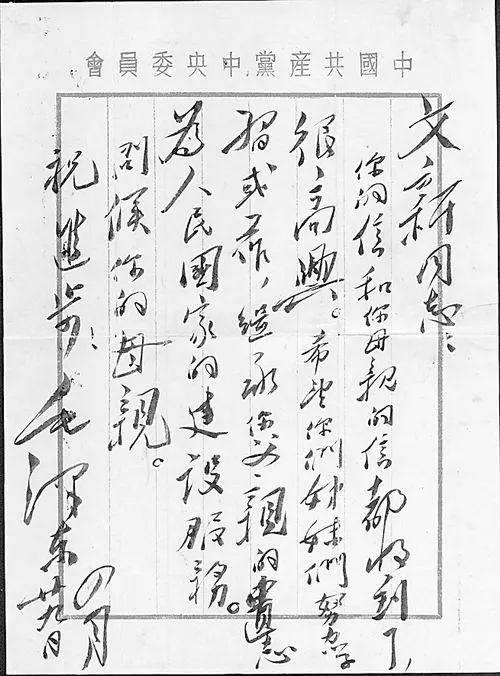 中國共產黨中央委員會
文 同志：
你的信和你母親的信都收到了，
很高興。希望你們姊妹們努力學
習或工作，繼承你父親的遺志
為人民國家的建設服務。
問候你的母親。
祝進步！
毛澤東
四月
廿九日